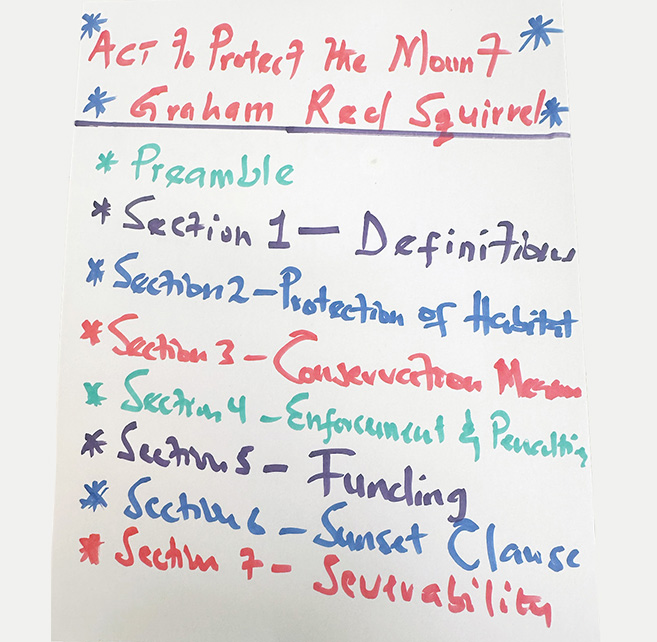 * Act to Protect the Mount *
* Graham Red Squirrel *
* Preamble
* Section 1 — Definitions
* Section 2 – Protection of Habitat
* Section 3 – Conservation Measures
* Section 4 – Enforcement & Penalties
* Section 5 – Funding
* Section 6 – Sunset Clause
* Section 7 – Severability